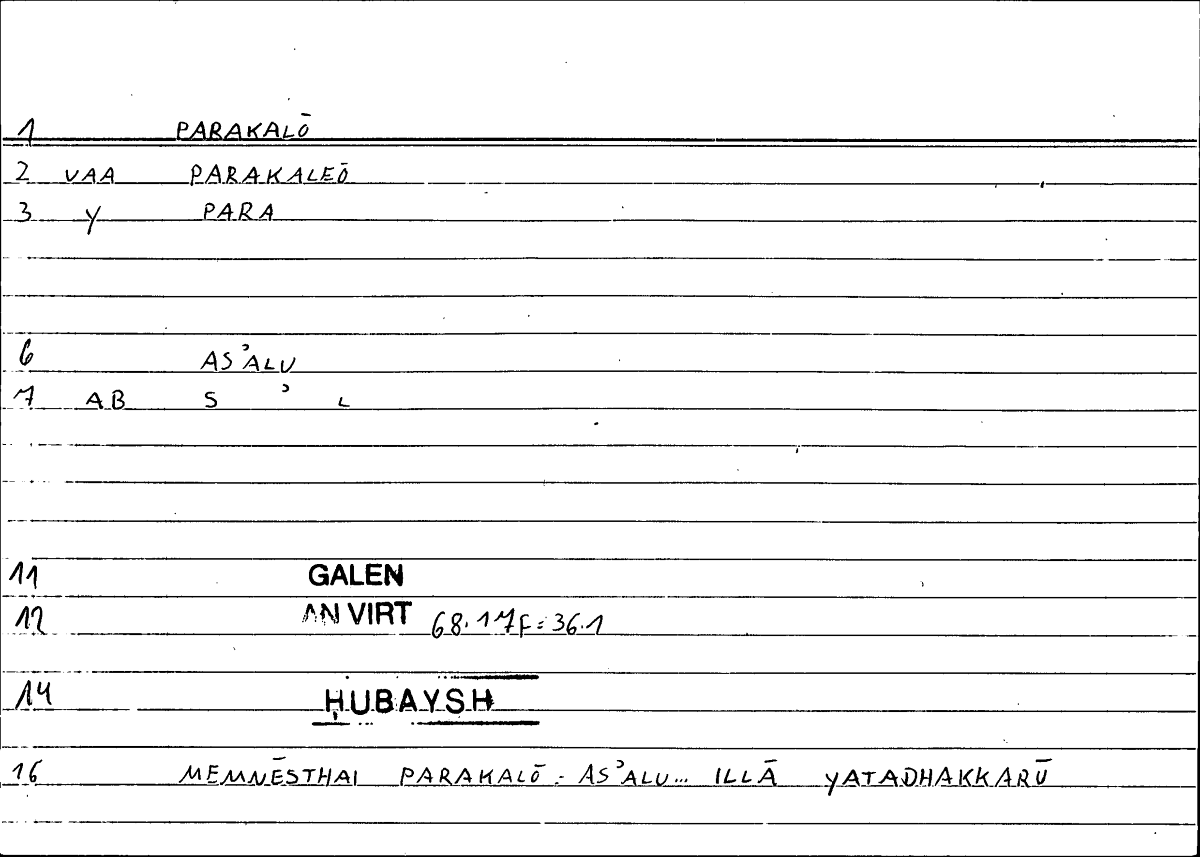 1 PARAKALŌ
2 VAA PARAKALEŌ
3 Y PARA
6 ASʾALU
7 AB S ʾ L
11 GALEN
12 AN VIRT 68.17F=36.1
14 ḤUBAYSH
16 MEMNĒSTHAI PARAKALŌ - ASʾALU... ILLĀ YATADHAKKARŪ